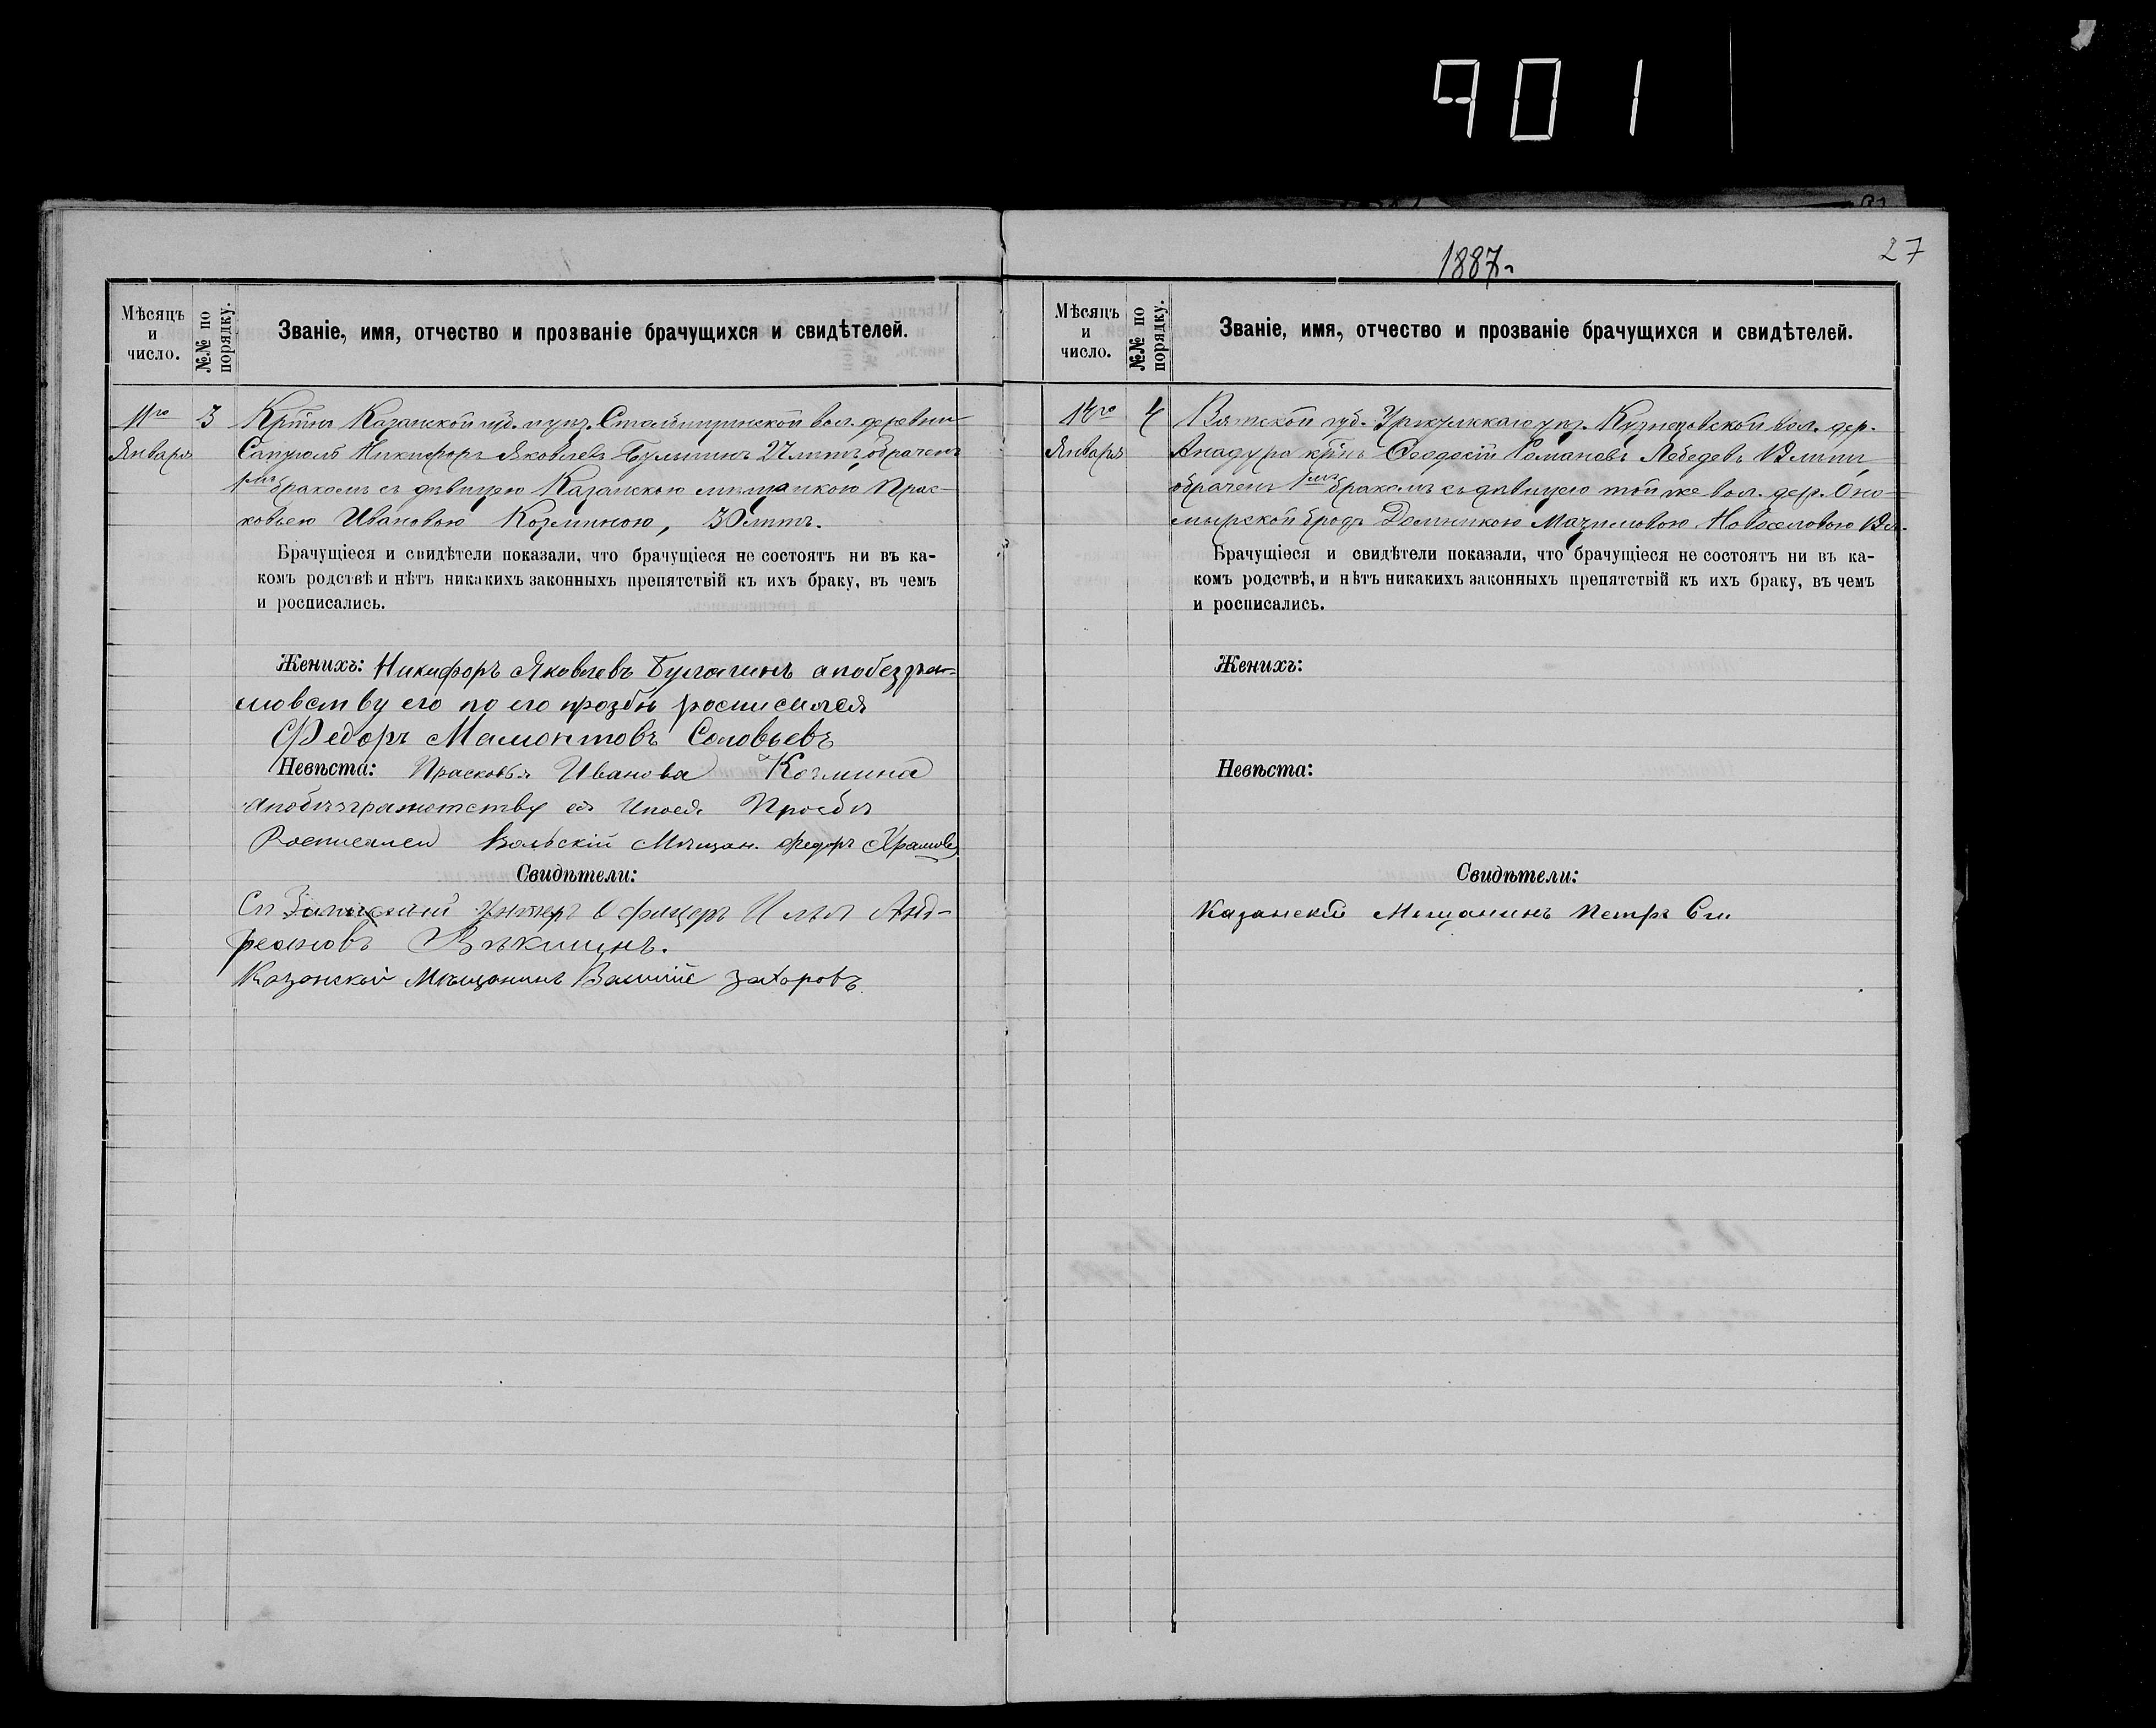 901
1887 г.
27
Мѣсяцъ и число.
№№ по порядку.
Званіе, имя, отчество и прозваніе брачущихся и свидѣтелей.
11го Января
3
Крн̃ъ Казанской губ. и уѣз. Столбищинской вол. деревни
Никифоръ Яковлевъ 27 лѣтъ, обраченъ
1мъ бракомъ съ дѣвицею Казанскою мѣщанкою Прас-
ковьею Ивановою Козминою, 30 лѣтъ.
Брачущіеся и свидѣтели показали, что брачущіеся не состоятъ ни въ ка-
комъ родствѣ и нѣтъ никакихъ законныхъ препятствій къ ихъ браку, въ чемъ
и росписались.
Женихъ: Никифоръ Яковлевъ Булагинъ а побезгра-
мовству его по его прозбѣ росписался
Федоръ Мамонтовъ Соловьевъ
Невѣста: Прасковья Иванова Козмина
апобезграмотству ея Ипоея Прозбѣ
Росписался Вольскій Мѣщан. Федоръ Храмов
Свидѣтели:
Унтеръ Офицеръ Илья Анд-
реяновъ
Казанскай Мѣщанинъ Захаровъ
Мѣсяцъ и число.
№№ по порядку.
Званіе, имя, отчество и прозваніе брачущихся и свидѣтелей.
Января
4
Вятской губ. уѣз. Кузнецовской вол. дер.
крн̃ъ Ѳеодосій Романовъ Лебедевъ 18 лѣтъ,
обраченъ 1мъ бракомъ съ дѣвицею той же вол. дер. Оно-
Домникою Новоселовою 18 л.
Брачущіеся и свидѣтели показали, что брачущіеся не состоятъ ни въ ка-
комъ родствѣ, и нѣтъ никакихъ законныхъ препятствій къ ихъ браку, въ чемъ
и росписались.
Женихъ:
Невѣста:
Свидѣтели:
Казанскій Мѣщанинъ Петръ См